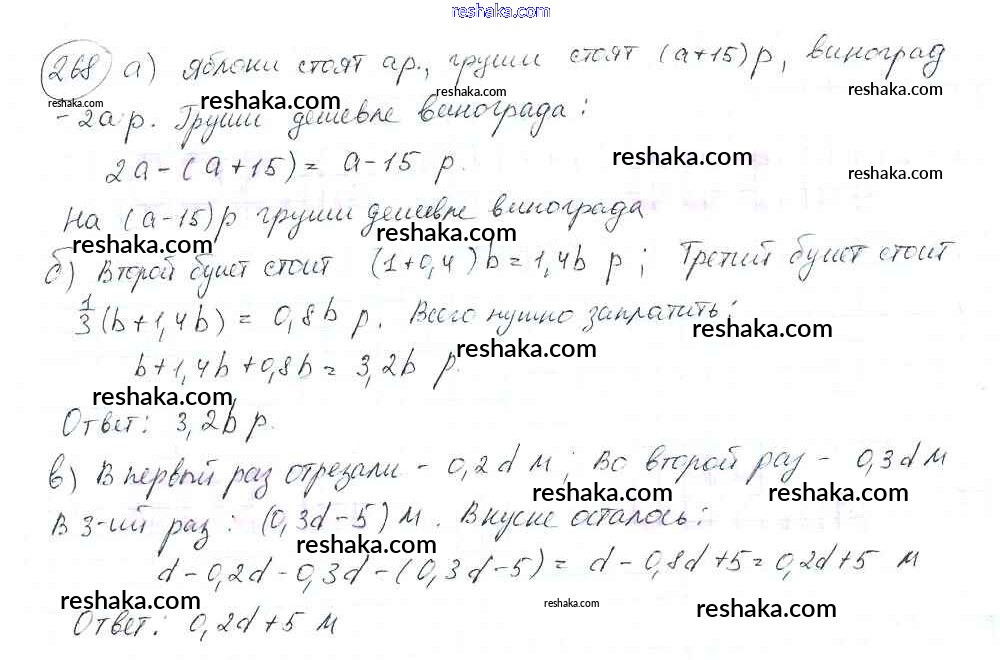 reshaka.com
268 а) Яблоки стоят ар., груши стоят (а+15) р, виноград
reshaka.com reshaka.com reshaka.com reshaka.com
- 2а р. Груши дешевле винограда:
2а-(а+15)= а-15 р.
reshaka.com reshaka.com
На (а-15)р груши дешевле винограда
reshaka.com reshaka.com
б) Второй букет стоит (1+0,4)b=1,4b р; Третий букет стоит
1/3(b+1,4b) = 0,8b р. Всего нужно заплатить:
reshaka.com reshaka.com
b+1,4b+0,8b=3,2b р.
reshaka.com
Ответ: 3,2b р.
в) В первый раз отрезали - 0,2d м; Во второй раз - 0,3d м
reshaka.com reshaka.com
В 3-ий раз: (0,3d-5) м. В куске осталось:
reshaka.com
d-0,2d-0,3d-(0,3d-5)= d-0,8d+5=0,2d+5 м
reshaka.com reshaka.com reshaka.com
Ответ: 0,2d+5 м